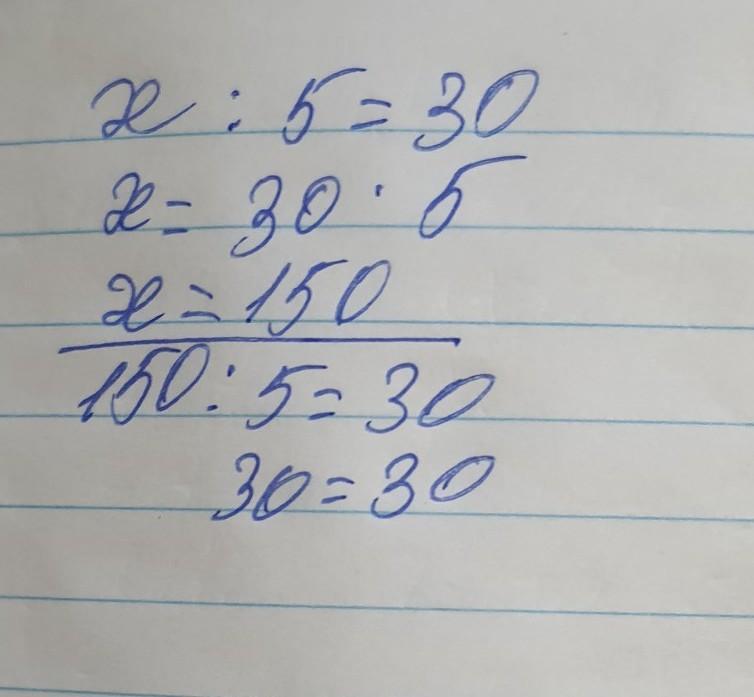 x : 5 = 30
x = 30 · 5
x = 150
150 : 5 = 30
30 = 30